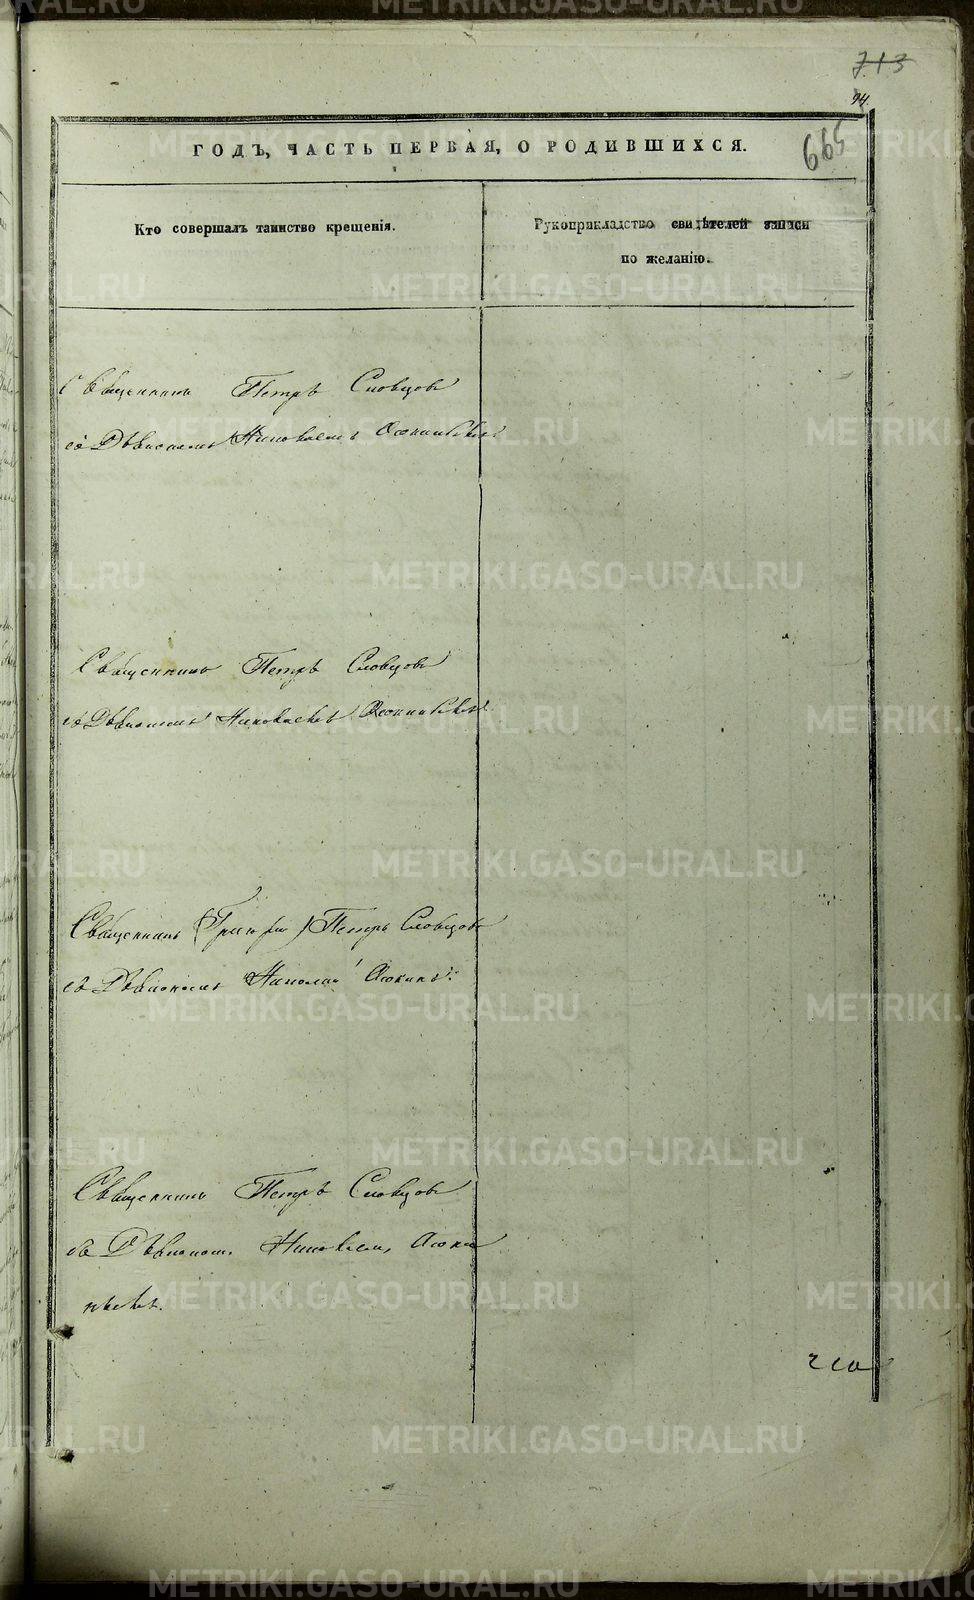 713
94.
665
ГОДЪ, ЧАСТЬ ПЕРВАЯ, О РОДИВШИХСЯ.
Кто совершалъ таинство крещенія.
Рукоприкладство свидѣтелей записи
по желанію.
Священникъ Петръ Словцовъ
съ Дьякономъ Николаемъ
Священникъ Петръ Словцовъ
съ Дьякономъ Николаемъ
Священникъ (Григорій) Петръ Словцовъ
съ Дьякономъ Николай
Священникъ Петръ Словцовъ
съ Дьякономъ Николаемъ
METRIKI.GASO-URAL.RU